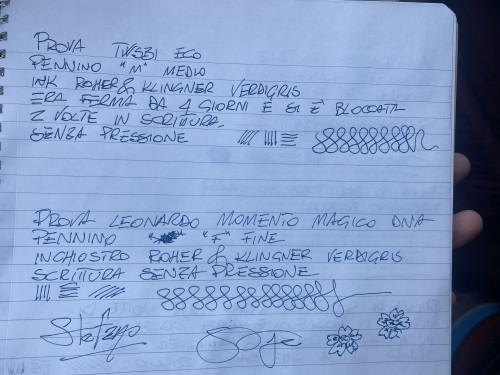 PROVA TWSBI ECO
PENNINO "M" MEDIO
INK ROHER & KLINGNER VERDIGRIS
ERA FERMA DA 4 GIORNI E SI È BLOCCATA
2 VOLTE IN SCRITTURA.
SENZA PRESSIONE
PROVA LEONARDO MOMENTO MAGICO DNA
PENNINO "F" FINE
INCHIOSTRO ROHER & KLINGNER VERDIGRIS
SCRITTURA SENZA PRESSIONE
Stefano